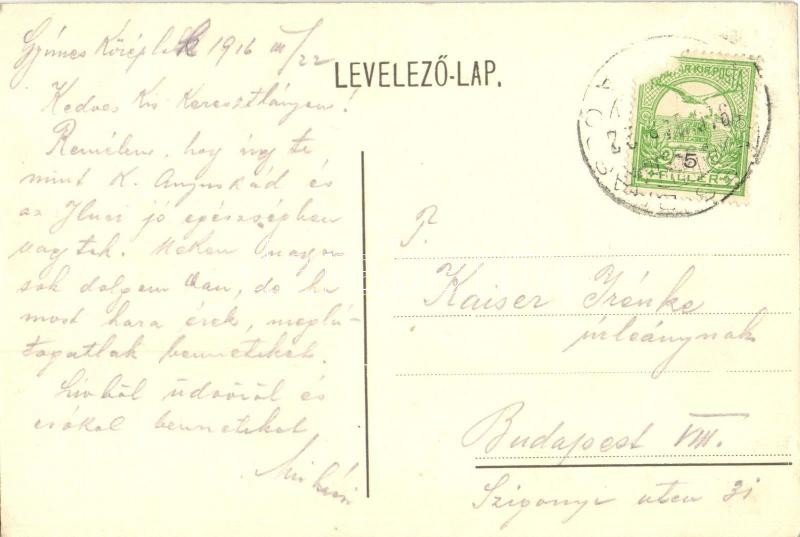 Gyimes Középlok 1916 III/22
LEVELEZŐ-LAP.
MAGYAR KIR. POSTA
5
FILLÉR
Kedves Kis Keresztlányom!
Remélem, hogy úgy te
mint K. Anyuskád és
az Ilusi jó egészségben
vagytok. Nekem nagyon
sok dolgom van, de ha
most haza érek, meglá-
togatlak benneteket.
Szívből üdvözöl és
csókol benneteket
T.
Kaiser Irénke
úrleánynak
Budapest VIII.
Szigonyi utca 31